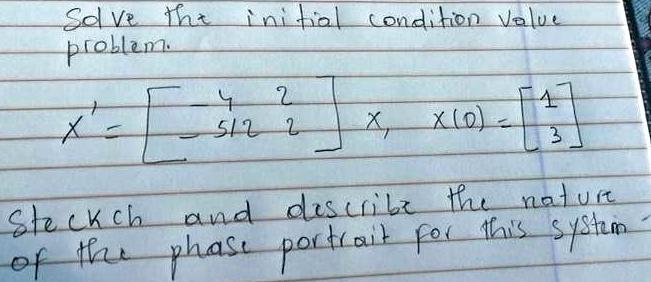 Solve the initial condition value
problem.
x' = [ -4 2
-5/2 2 ] x, x(0) = [ 1
3 ]
Steckch and describe the nature
of the phase portrait for this system